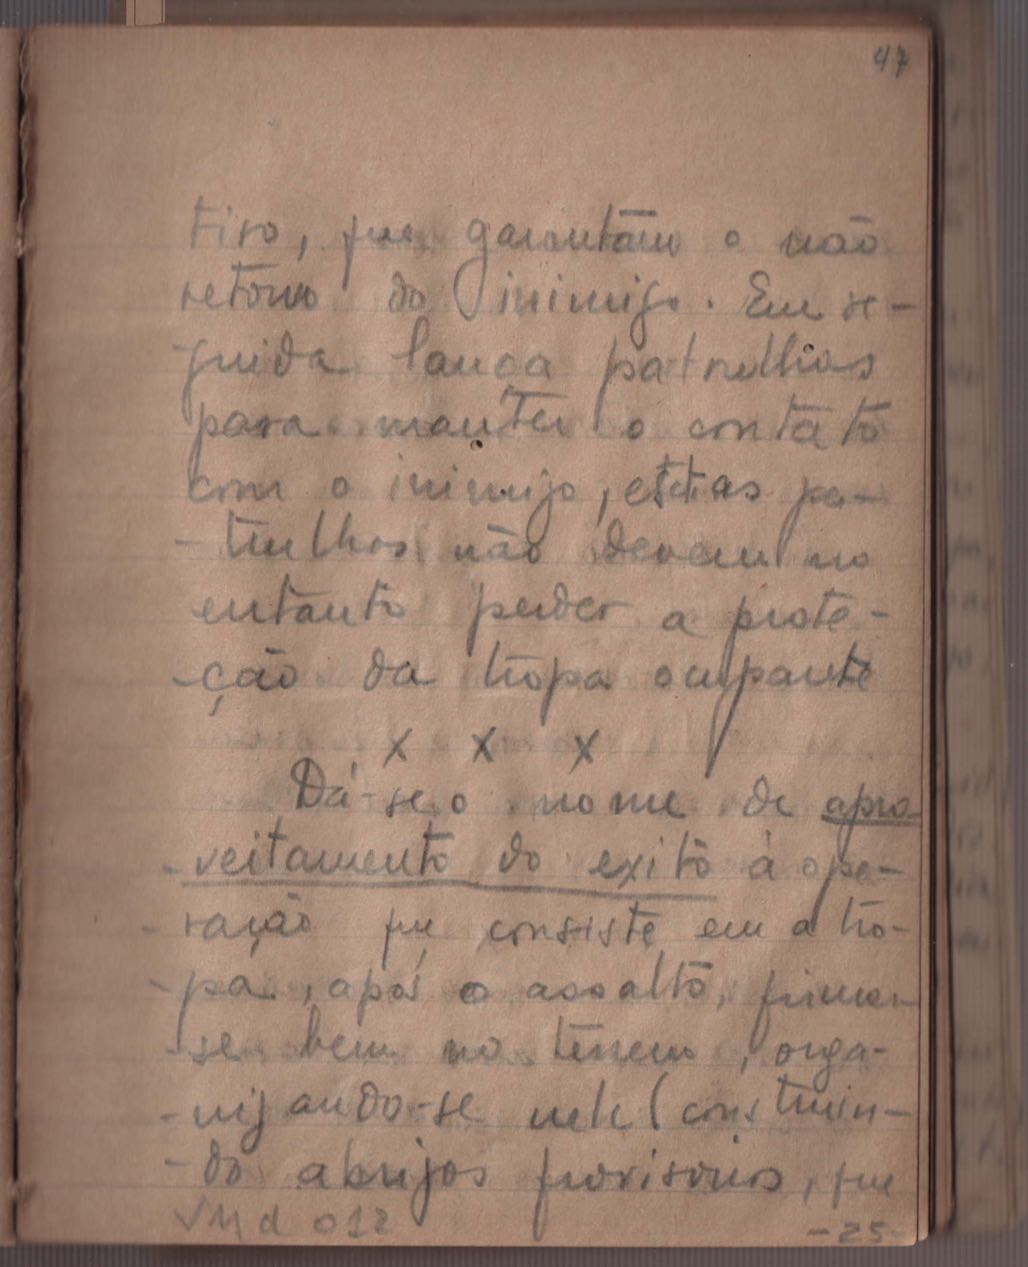 47
tiro, que garantam o não
retôrno do inimigo. Em se-
-guida lança patrulhas
para manter o contato
com o inimigo, estas pa-
-trulhas não devem no
entanto perder a prote-
-ção da tropa ocupante
X X X
Dá-se o nome de apro-
-veitamento do exito á ope-
-ração que consiste em a tro-
-pa, após o assalto, firmar-
-se bem no terreno, orga-
-nizando-se nele (construin-
-do abrigos provisorios, que
012
-25-